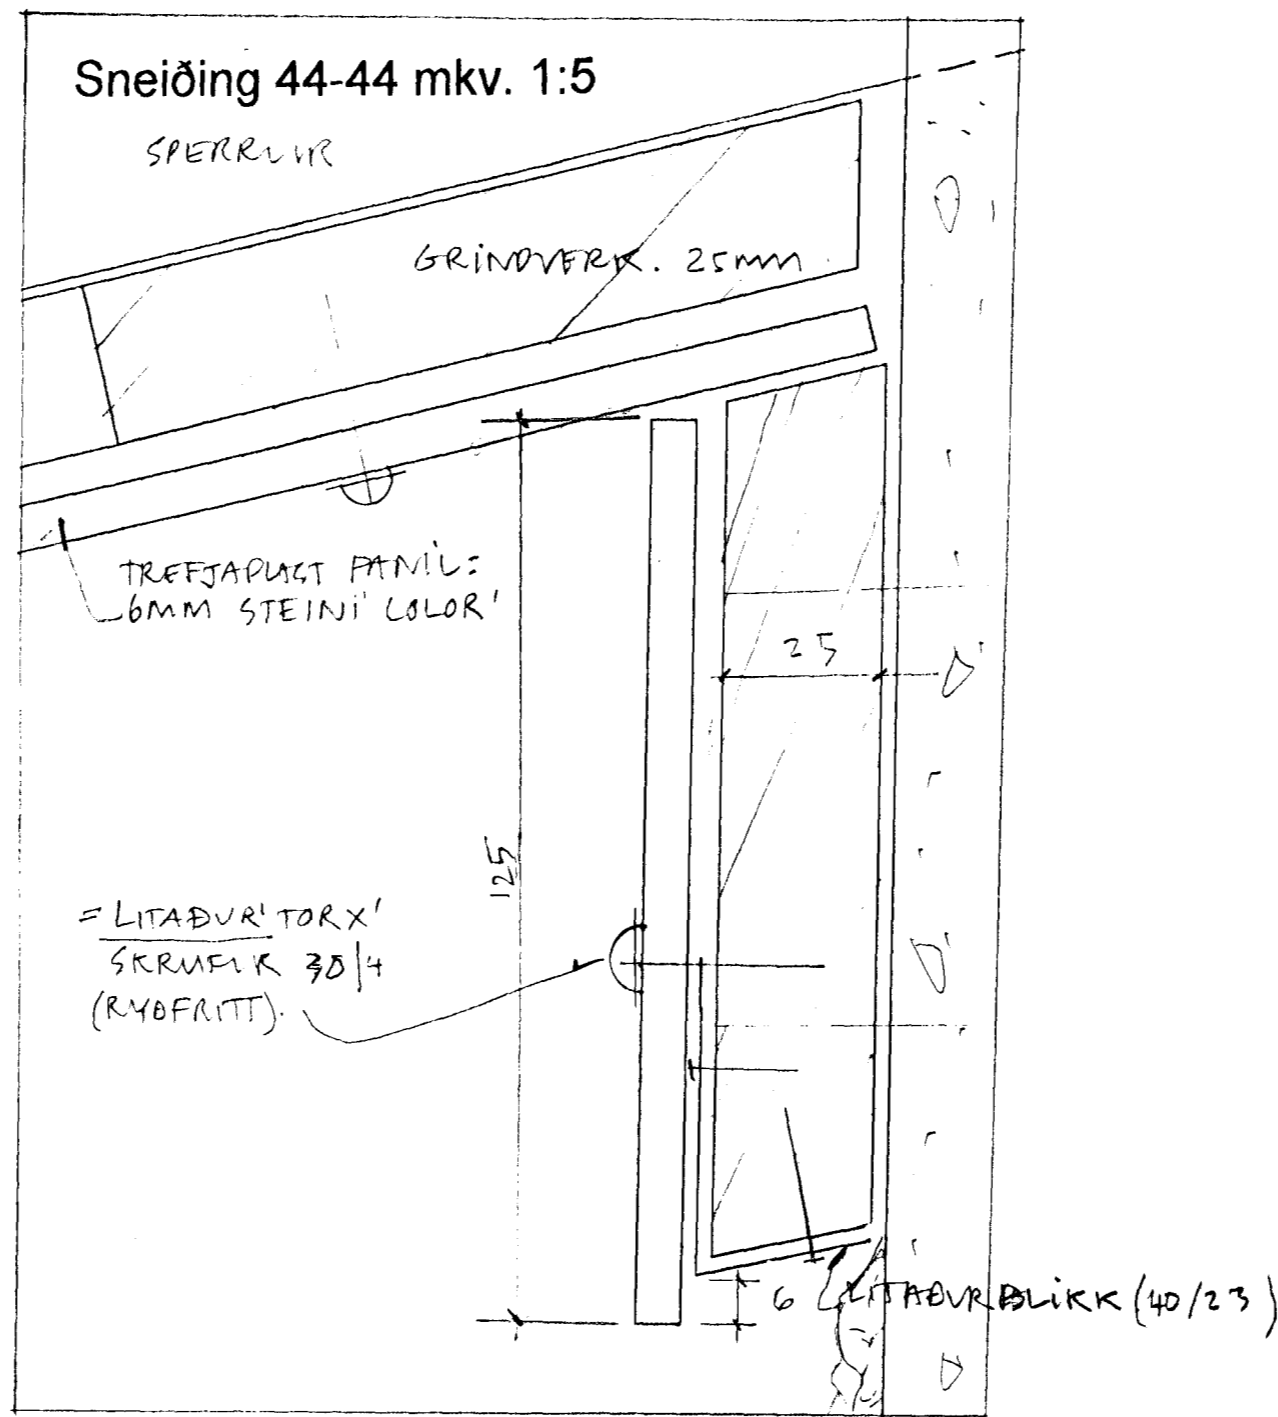 Sneiðing 44-44 mkv. 1:5
SPERRUR
GRINDVERK. 25mm
TREFJAPLAST PANIL:
6MM STEINI COLOR'
25
125
= LITAÐUR' TORX'
SKRUFUR 30/4
(RYÐFRITT).
6
LITAÐUR BLIKK (40/23)